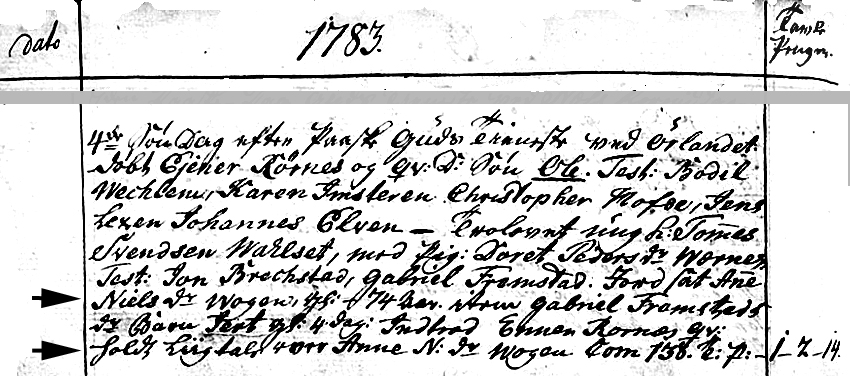 Dato
1783.
Tavle Penger.
4de Søn Dag efter Paaske Guds Tieneste ved Örlandet
Döbt Ejener Körnes og qv: Ds: Søn Ole. Test: Bodil
Wechlem, Karen Imsteren Christopher Hofde, Jens
Lexen Johannes Elven — Trolovet ung k: Tomes
Svendsen Wahlset, med Pig: Doret Peders dr Wernes
Test: Jon Brechstad, Gabriel Framstad. Jord sat Ane
Niels dr Wogen, gl: 74 aar. item Gabriel Framsteds
ds Barn gl: 4 dag: Indtrod Körnes qv:
holdt Liigtale over Anne N: dr Wogen Com 138. k: p:— 1–2–14.